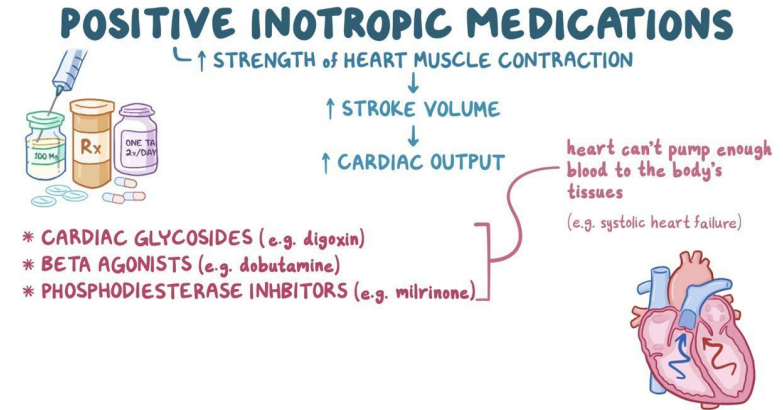 POSITIVE INOTROPIC MEDICATIONS
↑ STRENGTH of HEART MUSCLE CONTRACTION
↑ STROKE VOLUME
↑ CARDIAC OUTPUT
heart can't pump enough
blood to the body's
tissues
(e.g. systolic heart failure)
100 Mg
Rx
ONE TA
2x/DAY
* CARDIAC GLYCOSIDES (e.g. digoxin)
* BETA AGONISTS (e.g. dobutamine)
* PHOSPHODIESTERASE INHBITORS (e.g. milrinone)